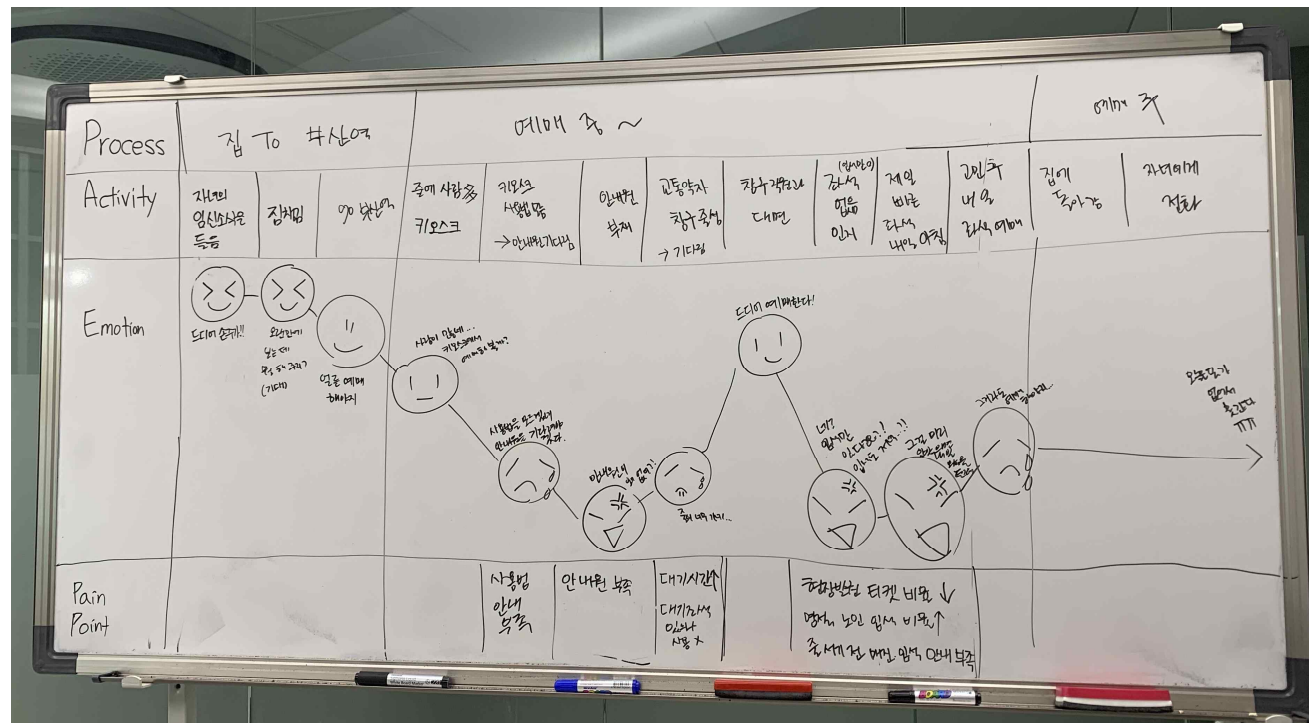 Process
집 To 부산역
예매 중 ~
예매 후
Activity
자녀의
임신소식을
들음
짐챙김
go 부산역
줄에 사람 多
키오스크
키오스크
사용법 모름
→ 안내원 기다림
안내원
부재
교통약자
창구 줄섬
→ 기다림
창구 직원과
대면
(입석만 0)
좌석
없음
인지
제일
빠른
좌석
내일 아침
고민 후
내일
좌석 예매
집에
돌아감
자녀에게
전화
Emotion
드디어 손주!!
오랜만에
보는데
(기대)
얼른 예매
해야지
사람이 많네...
키오스크에서
예매해 볼까?
사용법을 모르겠네
안내원을 기다려야
겠다.
안내원은 왜
줄이 너무 기네...
드디어 예매한다!
네?
입석만
있다고요?!
그걸 미리
그거라도
오늘 못가
없어서
ㅠㅠ
Pain
Point
사용법
안내
부족
안내원 부족
대기시간↑
대기좌석
있으나
사용 X
현장발권 티켓 비율 ↓
노인 입석 비율↑
줄 서기 전 매진, 입석 안내 부족